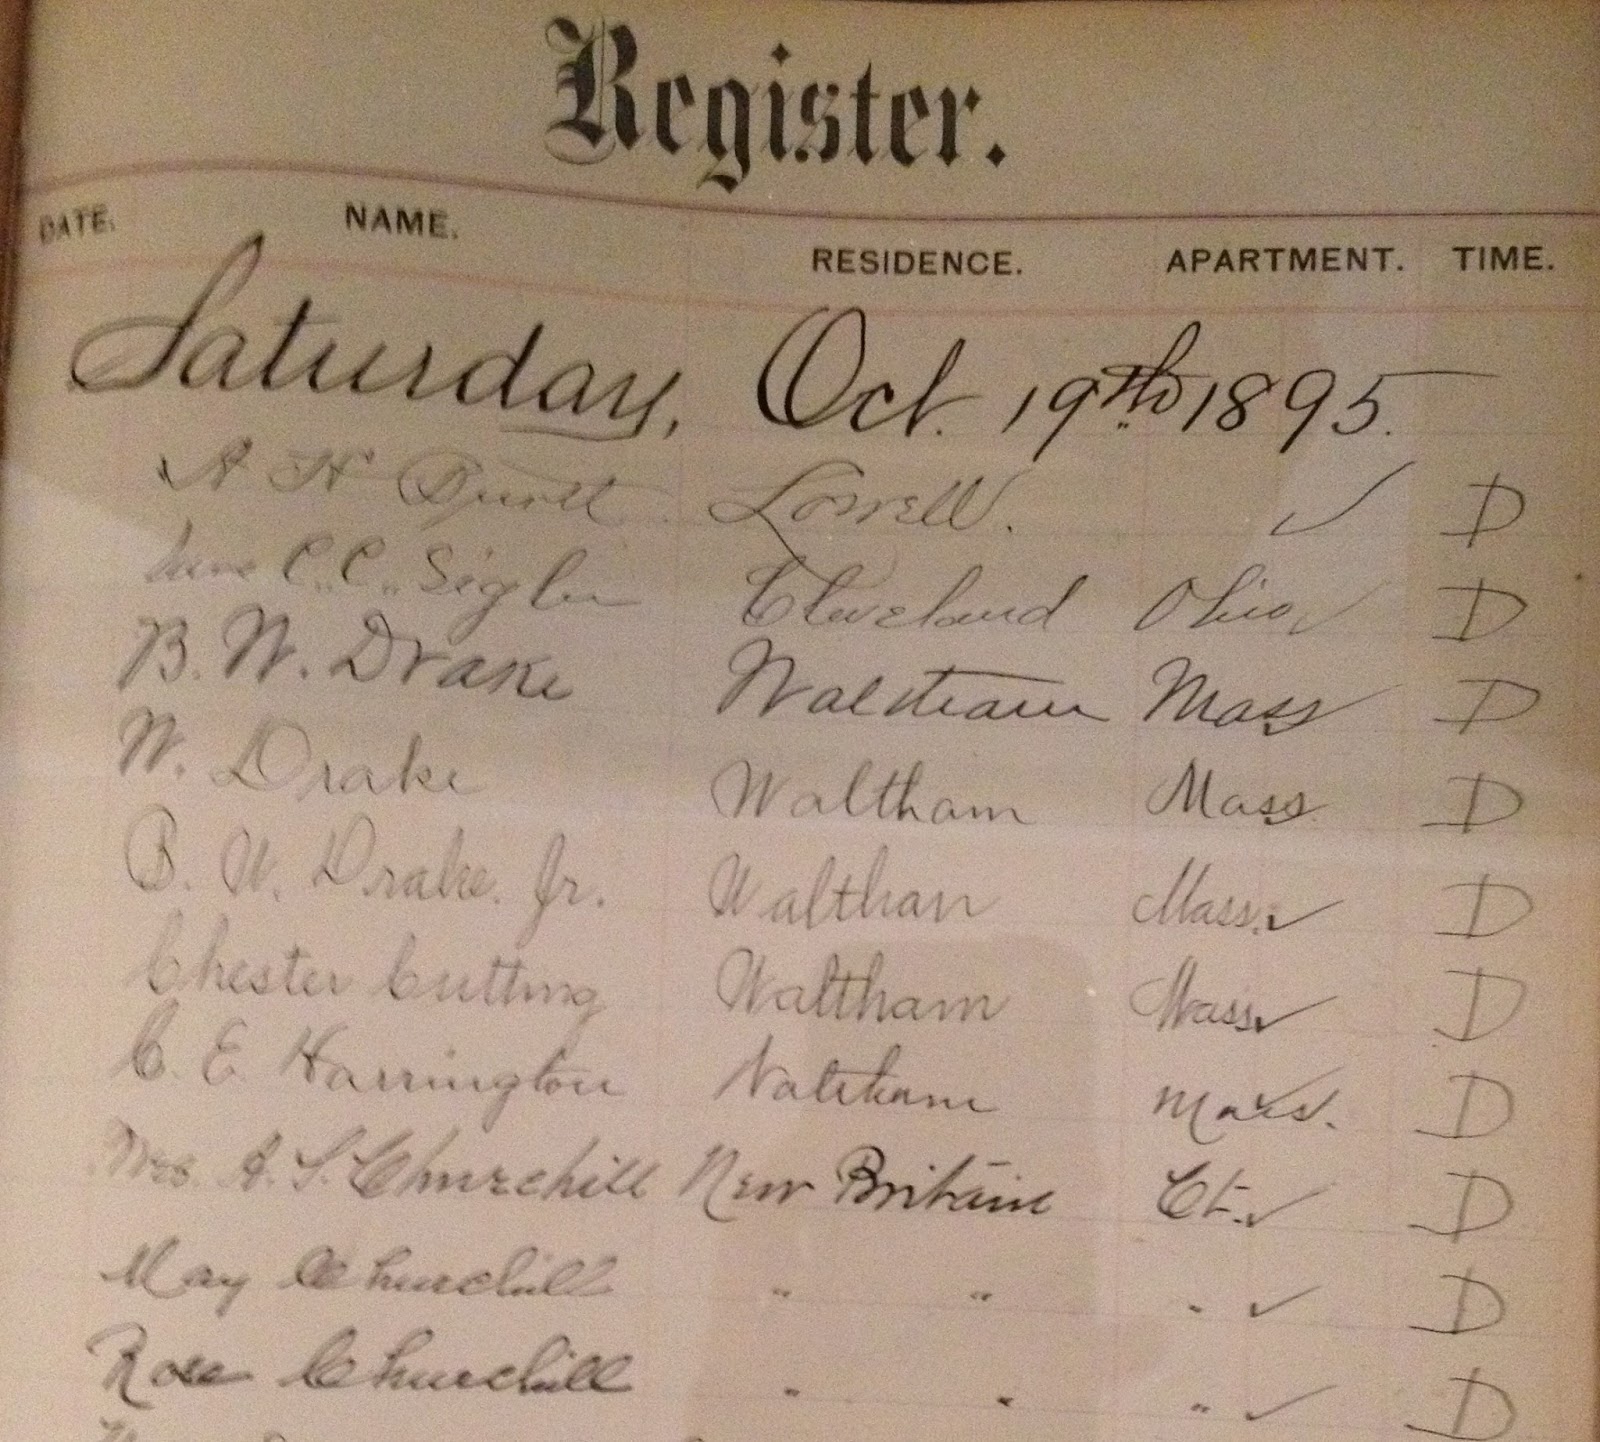 Register.
DATE. NAME. RESIDENCE. APARTMENT. TIME.
Saturday, Oct. 19th 1895.
A H Lowell. ✓ D
C. C. Sigler Cleveland Ohio ✓ D
B. W. Drake Waltham Mass ✓ D
W. Drake Waltham Mass D
B. W. Drake. Jr. Waltham Mass. ✓ D
Chester Cutting Waltham Mass ✓ D
C. E. Harrington Waltham Mass. D
Mrs. A. S. Churchill New Britain Ct. ✓ D
May Churchill " " " ✓ D
Rose Churchill " " " ✓ D